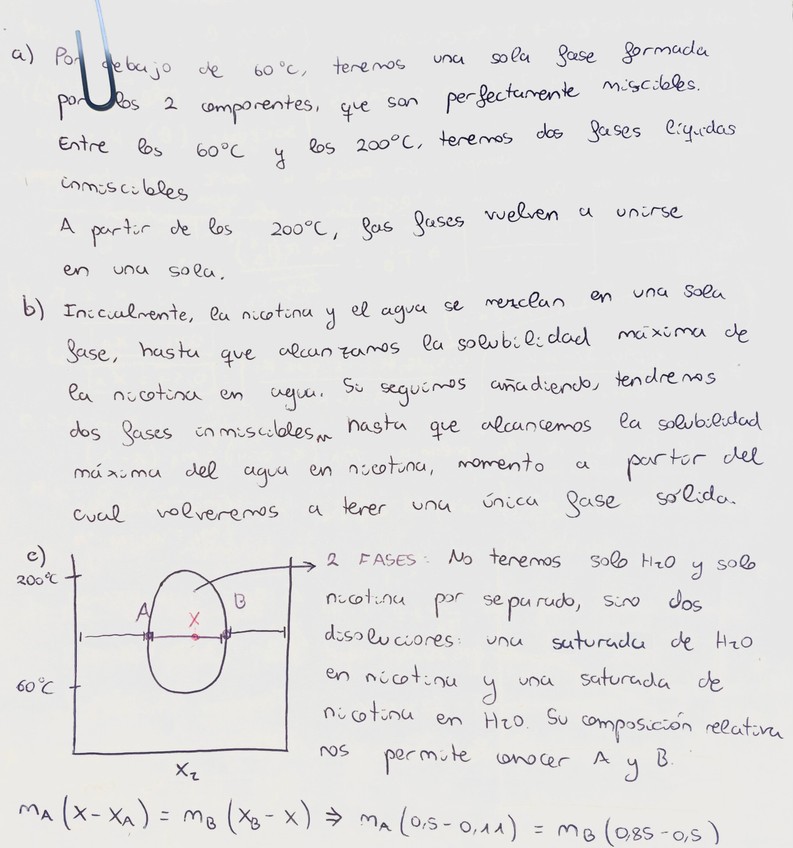 a) Por debajo de 60°C, tenemos una sola fase formada
por los 2 componentes, que son perfectamente miscibles.
Entre los 60°C y los 200°C, tenemos dos fases líquidas
inmiscibles
A partir de los 200°C, las fases vuelven a unirse
en una sola.
b) Inicialmente, la nicotina y el agua se mezclan en una sola
fase, hasta que alcanzamos la solubilidad máxima de
la nicotina en agua. Si seguimos añadiendo, tendremos
dos fases inmiscibles, hasta que alcancemos la solubilidad
máxima del agua en nicotina, momento a partir del
cual volveremos a tener una única fase sólida.
c) 2 FASES: No tenemos solo H2O y solo
nicotina por separado, sino dos
disoluciones: una saturada de H2O
en nicotina y una saturada de
nicotina en H2O. Su composición relativa
nos permite conocer A y B.
200°C
A
X
B
60°C
X2
mA (X-XA) = mB (XB-X) ⇒ mA (0,5-0,11) = mB (0,85-0,5)